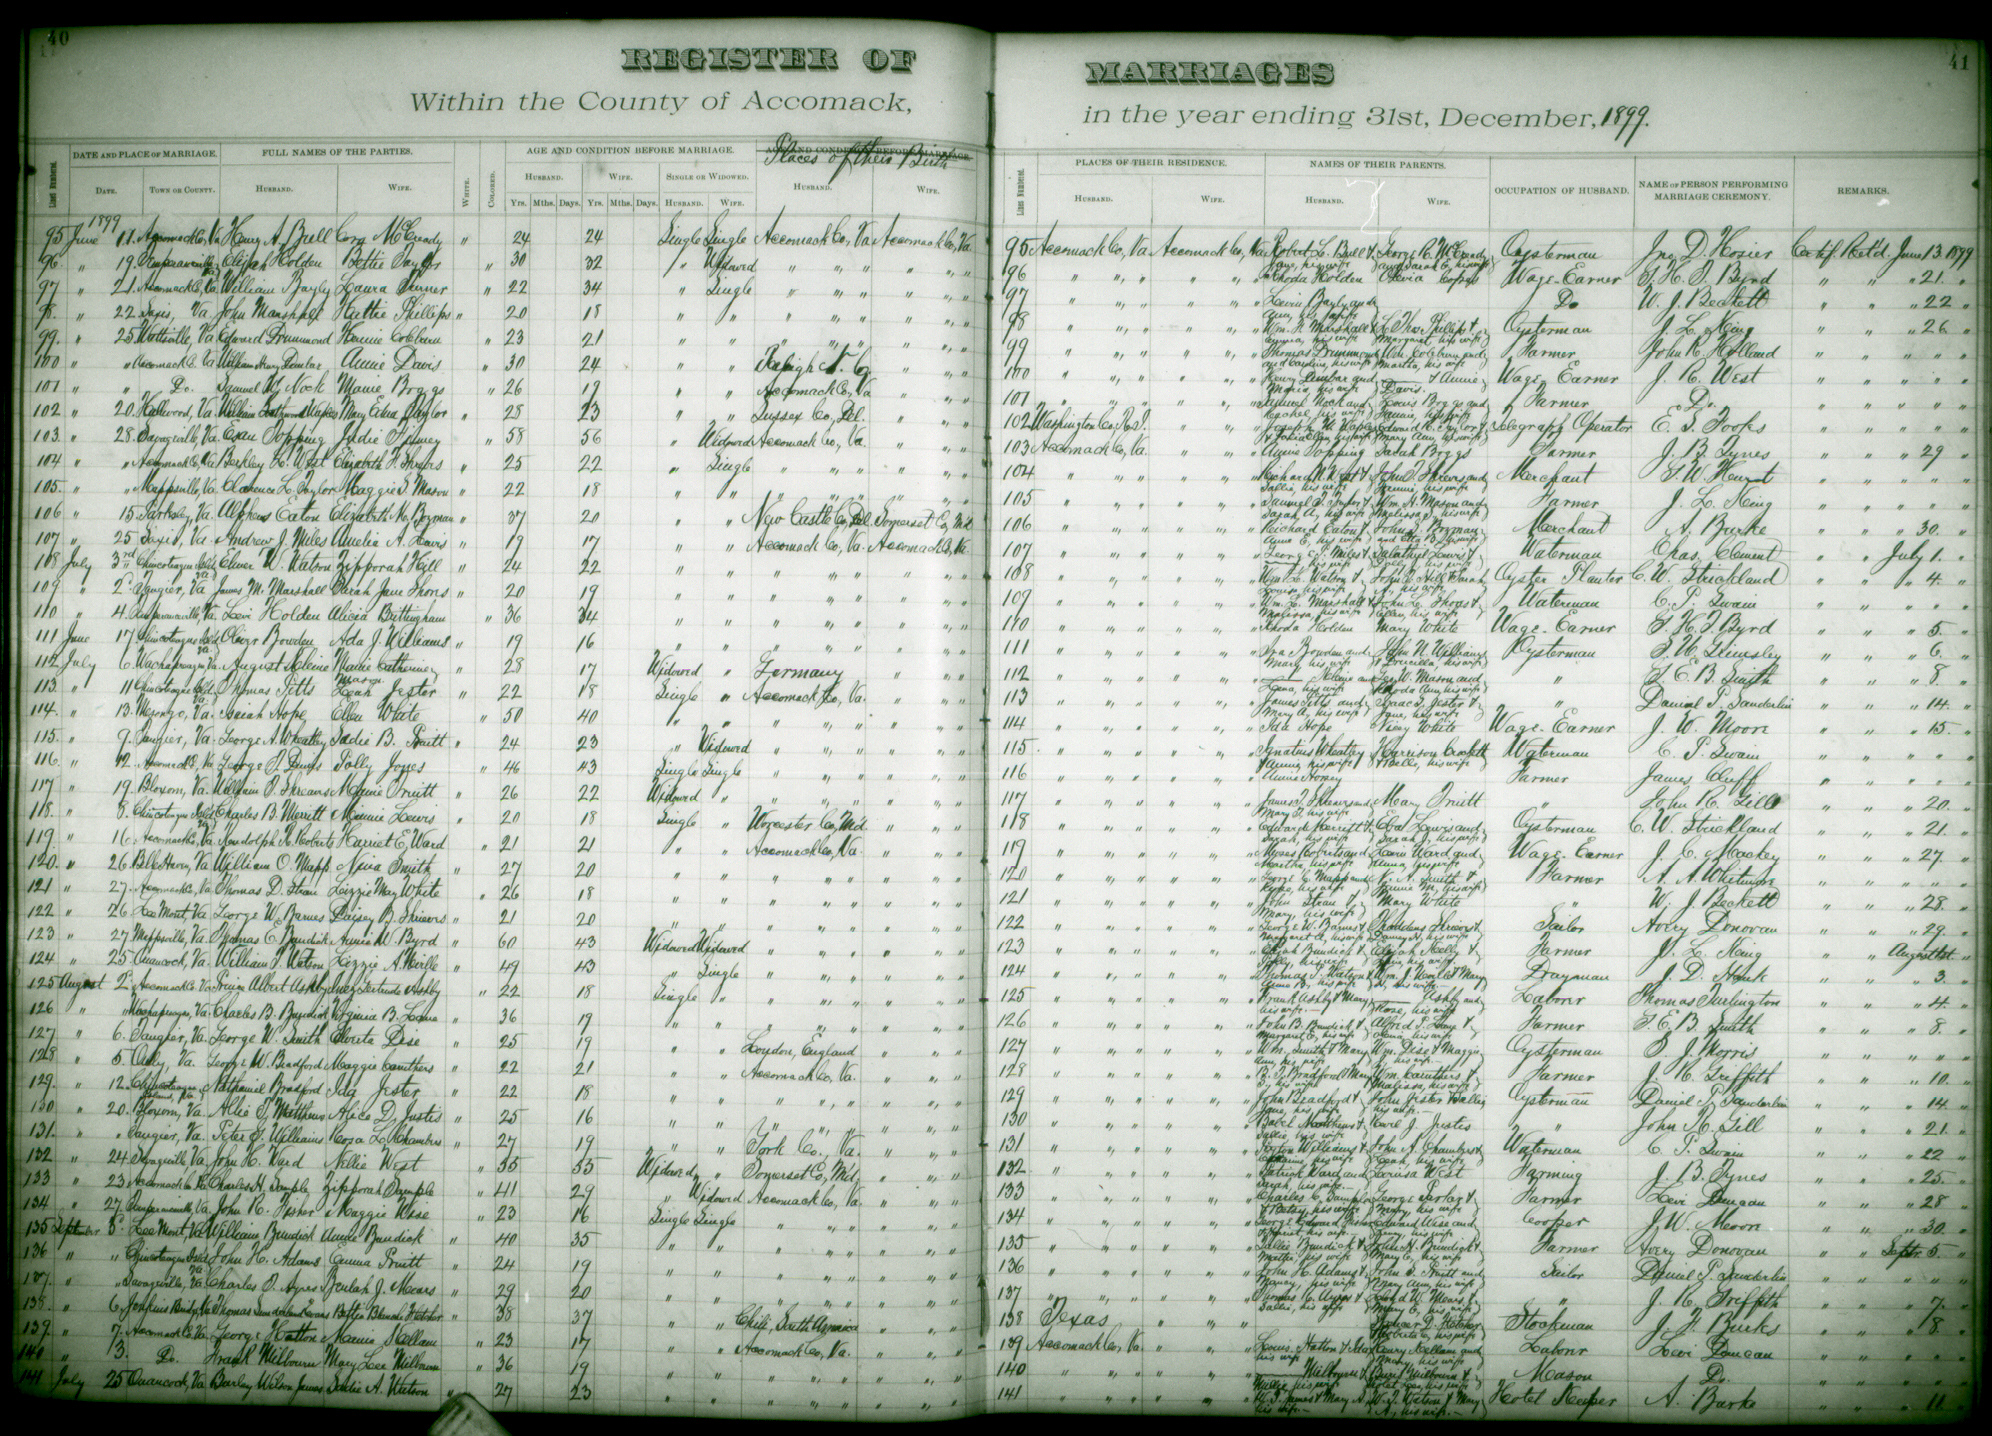 40
REGISTER OF
Within the County of Accomack,
DATE AND PLACE OF MARRIAGE. FULL NAMES OF THE PARTIES. AGE AND CONDITION BEFORE MARRIAGE. AGE AND CONDITION BEFORE MARRIAGE.
Places of their Birth
Lines Numbered. DATE. TOWN OR COUNTY. HUSBAND. WIFE. WHITE. COLORED. HUSBAND. WIFE. SINGLE OR WIDOWED. HUSBAND. WIFE.
Yrs. Mths. Days. Yrs. Mths. Days. HUSBAND. WIFE.
1899
95 June 11 Accomack Co, Va Henry A. Bull Cora McCready " 24 24 Single Single Accomack Co, Va Accomack Co, Va
96 " 19 Elijah Holden Bettie Taylor " 30 32 " Widowed " " " "
97 " 21 Accomack Co, Va William Bayly Laura Turner " 22 34 " Single " " " "
98 " 22 Saxis, Va John Marshall Hettie Phillips " 20 18 " " " " " "
99 " 25 Wattsville, Va Edward Drummond Hennie Coleburn " 23 21 " " " " " "
100 " " Accomack Co. Va William Henry Dunbar Annie Davis " 30 24 " " Raleigh N. C. " "
101 " " Do. Samuel W. Nock Mamie Boggs " 26 19 " " Accomack Co, Va " "
102 " 20 Hallwood, Va William Maples Mary Edna Taylor " 28 23 " " Sussex Co, Del. " "
103 " 28 Savageville, Va Evan Topping Sadie Finney " 58 56 " Widowed Accomack Co, Va. " "
104 " " Accomack Co, Va Berkley L. West Elizabeth F. Shrieves " 25 22 " Single " " " "
105 " " Mappsville, Va Clarence L. Taylor Maggie S. Mason " 22 18 " " " " " "
106 " 15 Parksley, Va. Alpheus Eaton Elizabeth M. Bozman " 37 20 " " New Castle Co, Del. Somerset Co, Md
107 " 25 Saxis, Va. Andrew J. Miles Amelia A. Lewis " 19 17 " " Accomack Co, Va. Accomack Co, Va.
108 July 3rd Chincoteague Isld Va Elmer W. Watson Zipporah Hill " 24 22 " " " " " "
109 " 2 Tangier, Va James M. Marshall Sarah Jane Shores " 20 19 " " " " " "
110 " 4 Temperanceville, Va Levi Holden Alicia Brittingham " 36 34 " " " " " "
111 June 17 Chincoteague Isld Va Oliver Bowden Ada J. Williams " 19 16 " " " " " "
112 July 6 Wachapreague Va. August Kleine Mamie Catherine Mason " 28 17 Widowed " Germany " "
113 " 11 Chincoteague Isld Va Thomas Pitts Leah Jester " 22 18 Single " Accomack Co, Va. " "
114 " 13 Messongo, Va. Isaiah Hope Ellen White " 50 40 " " " " " "
115 " 9 Tangier, Va George A. Wheatley Sadie B. Pruitt " 24 23 " Widowed " " " "
116 " 12 Accomack Co, Va George S. Dennis Polly Jones " 46 43 Single Single " " " "
117 " 19 Bloxom, Va William T. Shreaves Mamie Pruitt " 26 22 Widowed " " " " "
118 " 8 Chincoteague Isld Va Charles B. Merritt Minnie Lewis " 20 18 Single " Worcester Co, Md. " "
119 " 16 Accomack Co, Va Randolph H. Roberts Harriet E. Ward " 21 21 " " Accomack Co, Va. " "
120 " 26 Belle Haven, Va William O. Mapp Nina Smith " 27 20 " " " " " "
121 " 27 Accomack Co, Va Thomas D. Stran Lizzie May White " 26 18 " " " " " "
122 " 26 Lee Mont, Va George W. Barnes Daisey B. Shrieves " 21 20 " " " " " "
123 " 27 Mappsville, Va Thomas E. Bundick Annie W. Byrd " 60 43 Widowed Widowed " " " "
124 " 25 Onancock, Va. William T. Watson Lizzie A. Wirtle " 49 43 " Single " " " "
125 August 2 Accomack Co Va Prince Albert Ashby Inez Gertrude Ashby " 22 18 Single " " " " "
126 " " Wachapreague, Va. Charles B. Bundick Virginia B. Lang " 36 19 " " " " " "
127 " 6 Tangier, Va George W. Smith Cloreta Dise " 25 19 " " London, England " "
128 " 5 Only, Va. George W. Bradford Maggie Caruthers " 22 21 " " Accomack Co, Va. " "
129 " 12 Chincoteague Island, Va. Nathaniel Bradford Ida Jester " 22 18 " " " " " "
130 " 20 Bloxom, Va. Allie T. Matthews Alice D. Justis " 25 16 " " " " " "
131 " " Tangier, Va. Peter S. Williams Rosa L. Chambers " 27 19 " " York Co., Va. " "
132 " 24 Savageville, Va John H. Ward Nellie West " 55 55 Widowed " Somerset Co, Md. " "
133 " 23 Accomack Co. Va Charles H. Sample Zipporah Sample " 41 29 " Widowed Accomack Co, Va. " "
134 " 27 Temperanceville, Va. John R. Fisher Maggie Wise " 23 16 Single Single " " " "
135 September 3 Lee Mont, Va William Bundick Annie Bundick " 40 35 " " " " " "
136 " " Chincoteague Isld Va John H. Adams Emma Pruitt " 24 19 " " " " " "
137 " " Savageville, Va Charles O. Ayres Beulah J. Mears " 29 20 " " " " " "
138 " 6 Jenkins Bridge, Va Thomas Bettie Blanche Fletcher " 38 37 " " Chili, South America " "
139 " 7 Accomack Co Va. George Hatton Mamie Kellam " 23 17 " " Accomack Co, Va. " "
140 " 13 Do. Frank Milbourn Mary Lee Milbourn " 36 19 " " " " " "
141 July 25 Onancock, Va Burley Wilson James Sadie A. Watson " 27 23 " " " " " "
41
MARRIAGES
in the year ending 31st, December, 1899.
Lines Numbered. PLACES OF THEIR RESIDENCE. NAMES OF THEIR PARENTS. OCCUPATION OF HUSBAND. NAME OF PERSON PERFORMING MARRIAGE CEREMONY. REMARKS.
HUSBAND. WIFE. HUSBAND. WIFE.
95 Accomack Co, Va. Accomack Co, Va Robert L. Bull & Jane, his wife George R. McCready and Sarah C, his wife Oysterman Jno. D. Hosier Certif. Ret'd. June 13. 1899
96 " " " " Rhoda Holden Wage-Earner S. H. T. Byrd " " " 21. "
97 " " " " Levin Bayly and Ann, his wife Do W. J. Beckett " " " 22 "
98 " " " " Wm. H. Marshall & Emma, his wife L. Thos Phillips & Margaret, his wife Oysterman J. L. King " " " 26 "
99 " " " " Thomas Drummond and Caroline, his wife Wm. Coleburn and Martha, his wife Farmer John R. Holland " " " " "
100 " " " " Henry Dunbar and Maria, his wife Davis & Annie, Wage Earner J. R. West " " " " "
101 " " " " Samuel Nock and Rachel, his wife Lewis Boggs and Fannie, his wife Farmer Do. " " " " "
102 Washington Co, R. I. " " Joseph W. Maples & Julia Ellen, his wife Edward R. Taylor & Mary Ann, his wife Telegraph Operator E. T. Fooks " " " " "
103 Accomack Co, Va. " " Annie Topping Sarah Boggs Farmer J. B. Tynes " " " 29 "
104 " " " " Richard W. West & Sallie, his wife John T. Shrieves and Fannie, his wife Merchant S. W. Hurst " " " " "
105 " " " " Samuel T. Taylor & Sarah A, his wife Wm. H. Mason and Melissa, his wife Farmer J. L. King " " " " "
106 " " " " Richard Eaton & Anna E, his wife John S. Bozman and Etta B, his wife Merchant A. Burke " " " 30. "
107 " " " " George T. Miles & his wife Salathiel Lewis & Polly, his wife Waterman Chas. Clement " " July 1. "
108 " " " " Wm. L. Watson & Louisa, his wife John T. Hill & Sarah A, his wife Oyster Planter C. W. Strickland " " " 4. "
109 " " " " Wm. L. Marshall & Malissa, his wife John L. Shores & Ellen, his wife Waterman C. P. Swain " " " " "
110 " " " " Rhoda Holden Mary White Wage-Earner S. H. T. Byrd " " " 5. "
111 " " " " Ira J. Bowden and Mary, his wife John N. Williams & Drucilla, his wife Oysterman S. U. Grimsley " " " 6. "
112 " " " " Kleine and Lena, his wife Geo. W. Mason and Rhoda Ann, his wife " S. E. B. Smith " " " 8 "
113 " " " " James Pitts and Mary A, his wife Isaac S. Jester & Jane, his wife " Daniel T. Sanderlin " " " 14. "
114 " " " " Ida Hope Nicy White Wage-Earner J. W. Moore " " " 15. "
115 " " " " Ignatius Wheatley & Annie, his wife Harrison Crockett & Belle, his wife Waterman C. P. Swain " " " " "
116 " " " " Annie Horsey Farmer James Cluff " " " " "
117 " " " " James T. Shreaves and Mary T, his wife Mary Pruitt " John R. Gill " " " 20. "
118 " " " " Edward Merritt & Sarah, his wife Eba Lewis and Sarah J, his wife Oysterman C. W. Strickland " " " 21. "
119 " " " " Moses Roberts and Martha, his wife Levin Ward and Emma, his wife Wage-Earner J. C. Mackey " " " 27. "
120 " " " " George C. Mapp and his wife N. A. Smith & Fannie M, his wife Farmer A. A. Whitmore " " " " "
121 " " " " John Stran & Mary, his wife Mary White " W. J. Beckett " " " 28. "
122 " " " " George W. Barnes & Margaret A, his wife Thaddeus Shrieves & his wife Sailor Avery Donovan " " " 29. "
123 " " " " Elijah Bundick & Sally, his wife Elijah Kelly & his wife Farmer J. L. King " " August 1st. "
124 " " " " Thomas T. Watson & Anna B, his wife Wm. J. & Mary H, his wife Drayman J. D. Hank " " " 3. "
125 " " " " Frank Ashby & Mary his wife Ashby and Rose, his wife Laborer Thomas Turlington " " " 4. "
126 " " " " John B. Bundick & Margaret E, his wife Alfred T. Lang & his wife Farmer S. E. B. Smith " " " 8. "
127 " " " " Wm. Smith & Mary Ann, his wife Wm. Dise & Maggie J, his wife Oysterman S. J. Morris " " " " "
128 " " " " B. T. Bradford & Mary S, his wife Wm. Caruthers & Malissa, his wife Farmer J. R. Griffith " " " 10. "
129 " " " " John Bradford & Jane, his wife John Jester & Sallie his wife Oysterman Daniel T. Sanderlin " " " 14. "
130 " " " " Babel Matthews & Sallie, his wife Revel J. Justis " John R. Gill " " " 21. "
131 " " " " Williams & his wife John A. Chambers & Leah, his wife Waterman C. P. Swain " " " 22 "
132 " " " " Patrick Ward and Sarah, his wife Louisa West Farming J. B. Tynes " " " 25. "
133 " " " " Charles C. Sample & Betsy, his wife George Parker & Mary, his wife Farmer Levi Duncan " " " 28 "
134 " " " " George Edward Fisher & Harriet, his wife Edward Wise and Jenny, his wife Cooper J. W. Moore " " " 30. "
135 " " " " Sallie Bundick & his wife John H. Bundick & Mary E, his wife Farmer Avery Donovan " " Septr. 5. "
136 " " " " John H. Adams & Nancy, his wife John S. Pruitt and Mary Ann, his wife Sailor Daniel T. Sanderlin " " " " "
137 " " " " Thomas C. Ayres & Sallie, his wife Lloyd W. Mears & Mary E, his wife " J. R. Griffith " " " 7. "
138 Texas " " Spencer D. Fletcher & Roberta C, his wife Stockman J. F. Burks " " " 8. "
139 Accomack Co, Va. " " Louis Hatton & Ida his wife Henry Kellam and Mary, his wife Laborer Levi Duncan " " " " "
140 " " " " Milbourn & Millie, his wife Milbourn & his wife Mason Do. " " " " "
141 " " " " W. T. James & Mary A, his wife W. T. Watson & Mary A, his wife Hotel Keeper A. Burke " " " 11. "